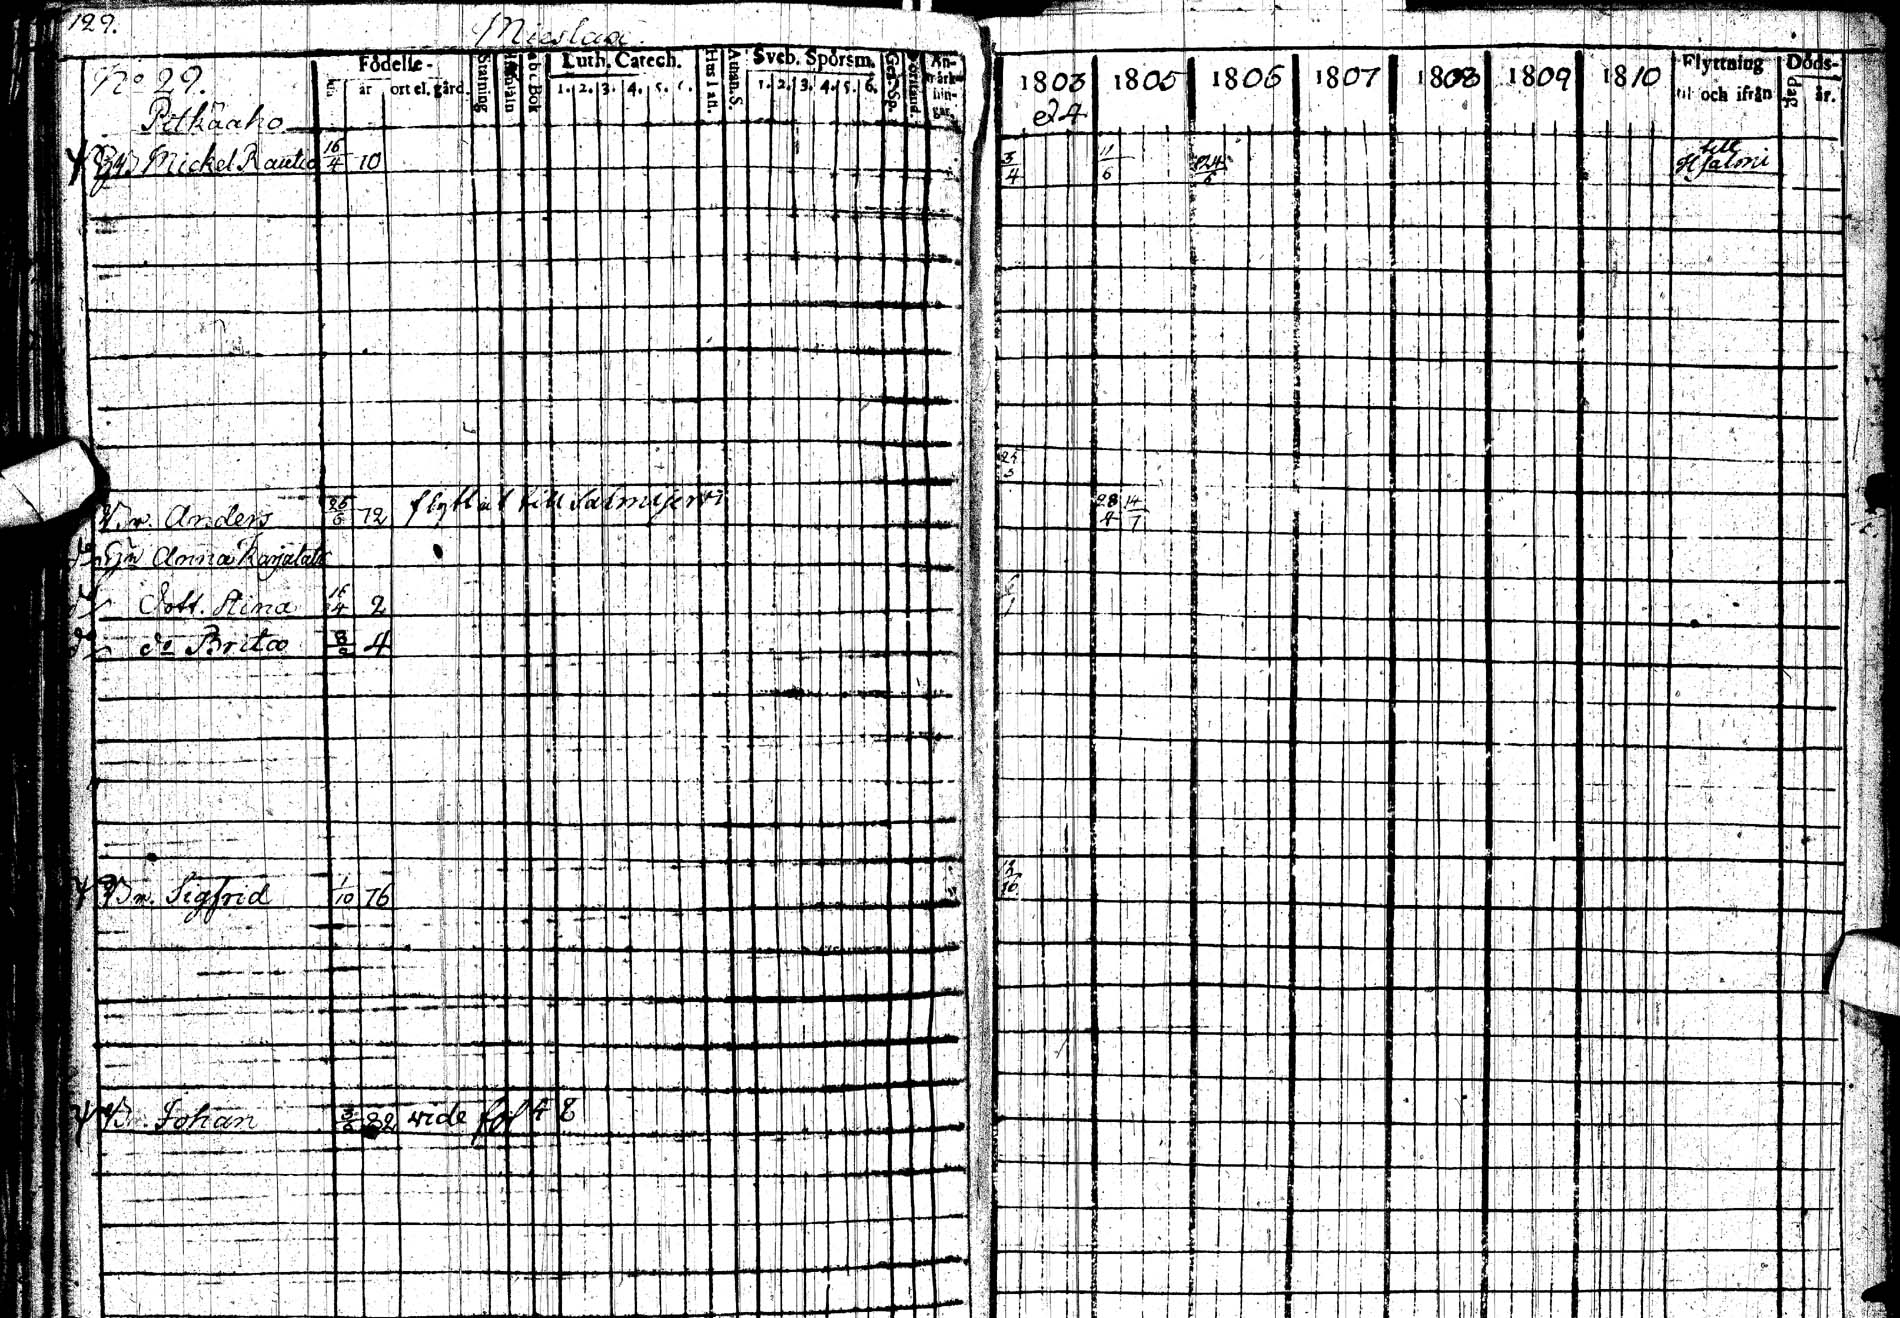 129.
Mieslax.
No 29.
Födelse-
år
ort el. gård.
Stafning
abc Bok
Luth. Catech.
1. 2. 3. 4. 5.
Hustafl.
Athan. S.
Sveb. Spörsm.
1. 2. 3. 4. 5. 6.
Förstånd
An-
märk-
nin-
gar
1803 1805 1806 1807 1808 1809 1810
e 4
Flyttning
til och ifrån
Döds-
dag. år.
Petkäaho
Mickel Rautio 16/4 10 3/4 11/6 24/6 till
25/3
Br. Anders 25/6 72 flyttat till Salmijervi 28/4 14/7
Anna Karjalain
Dott. Stina 16/4 2
do Brita 4
Br. Sigfrid 1/10 76
Br. Johan 82 vide fol 48